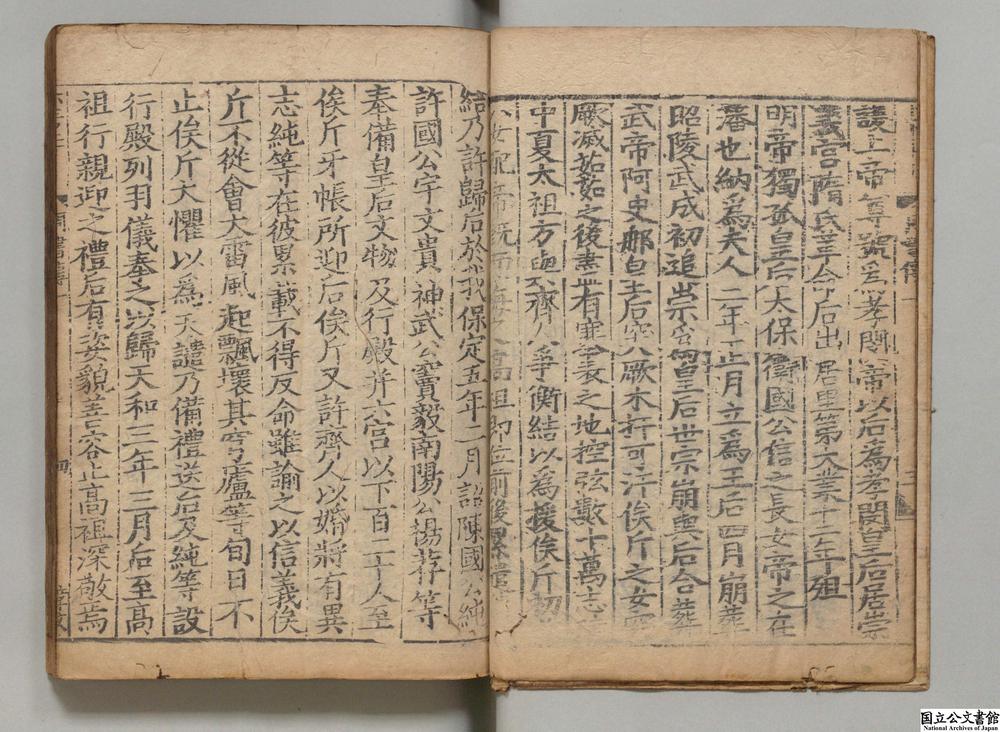 護上帝尊號爲孝閔帝以后爲孝閔皇后居崇
義宮隋氏革命后出居里第大業十二年殂
明帝獨孤皇后太保衞國公信之長女帝之在
藩也納爲夫人二年正月立爲王后四月崩葬
昭陵武成初追崇爲皇后世宗崩與后合葬
武帝阿史那皇后突厥木扞可汗俟斤之女突
厥滅茹茹之後盡有塞表之地控弦數十萬志
中夏太祖方與齊人爭衡結以爲援俟斤初
女配帝既而悔之高祖即位前後累遣
結乃許歸后於我保定五年二月詔陳國公純
許國公宇文貴神武公竇毅南陽公楊荐等
奉備皇后文物及行殿幷六宮以下百二十人至
俟斤牙帳所迎后俟斤又許齊人以婚將有異
志純等在彼累載不得反命雖諭之以信義俟
斤不從會大雷風起飄壞其穹廬等旬日不
止俟斤大懼以爲天譴乃備禮送后及純等設
行殿列羽儀奉之以歸天和三年三月后至高
祖行親迎之禮后有姿貌善容止高祖深敬焉
国立公文書館
National Archives of Japan